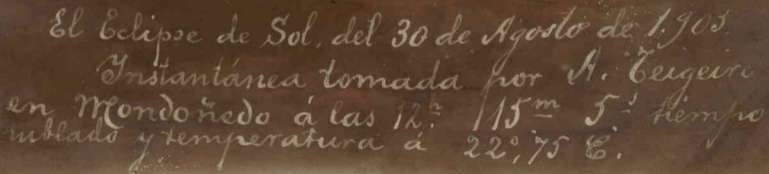 El Eclipse de Sol. del 30 de Agosto de 1.905
Instantánea tomada por A. Teigeiro
en Mondoñedo á las 12.h 115m 5s tiempo
nublado y temperatura á 22º,75 C.